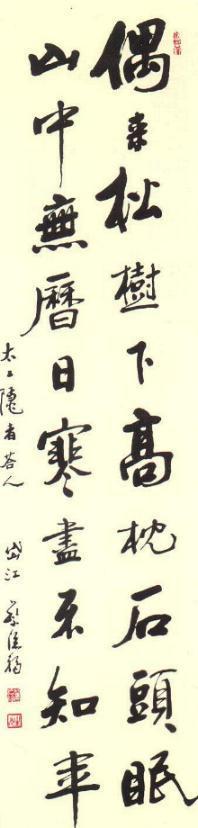 偶来松樹下高枕石頭眠
山中無曆日寒盡不知年
太上隱者答人
岱江